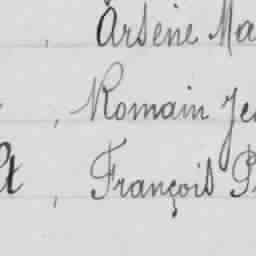 , Arsène Ma
, Romain Je
t, François P